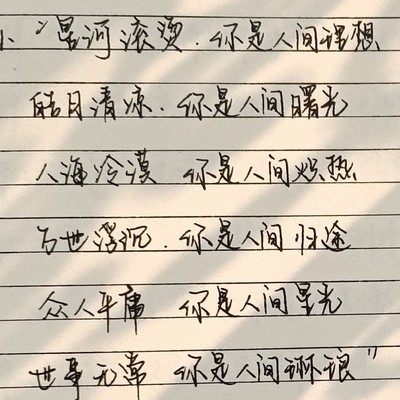 1、“星河滚烫.你是人间理想
皓月清凉.你是人间曙光
人海冷漠 你是人间炽热
万世浮沉.你是人间归途
众人平庸 你是人间星光
世事无常 你是人间琳琅”